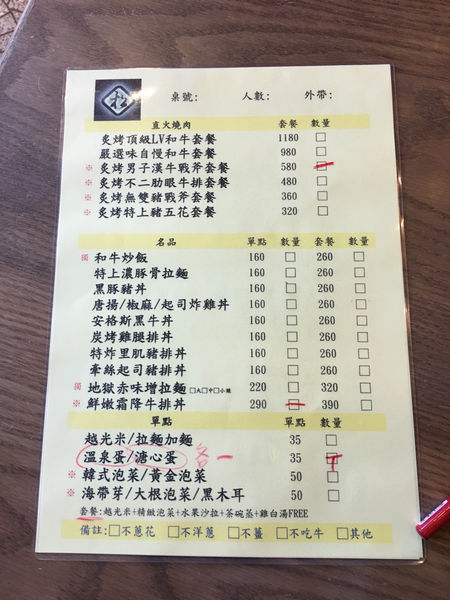 松 桌號: 人數: 外帶:
直火燒肉 套餐 數量
炙烤頂級LV和牛套餐 1180 □
嚴選味自慢和牛套餐 980 □
※ 炙烤男子漢牛戰斧套餐 580 □
※ 炙烤不二肋眼牛排套餐 480 □
※ 炙烤無雙豬戰斧套餐 360 □
※ 炙烤特上豬五花套餐 320 □
名品 單點 數量 套餐 數量
獨 和牛炒飯 160 □ 260 □
特上濃豚骨拉麵 160 □ 260 □
黑豚豬丼 160 □ 260 □
唐揚/椒麻/起司炸雞丼 160 □ 260 □
安格斯黑牛丼 160 □ 260 □
炭烤雞腿排丼 160 □ 260 □
特炸里肌豬排丼 160 □ 260 □
牽絲起司豬排丼 160 □ 260 □
獨 地獄赤味增拉麵 □大□中□小辣 220 □ 320 □
※ 鮮嫩霜降牛排丼 290 □ 390 □
單點 單點 數量
越光米/拉麵加麵 35 □
溫泉蛋/溏心蛋 各一 35 □
※ 韓式泡菜/黃金泡菜 50 □
※ 海帶芽/大根泡菜/黑木耳 50 □
套餐:越光米+精緻泡菜+水果沙拉+茶碗蒸+雞白湯FREE
備註: □不蔥花 □不洋蔥 □不薑 □不吃牛 □其他